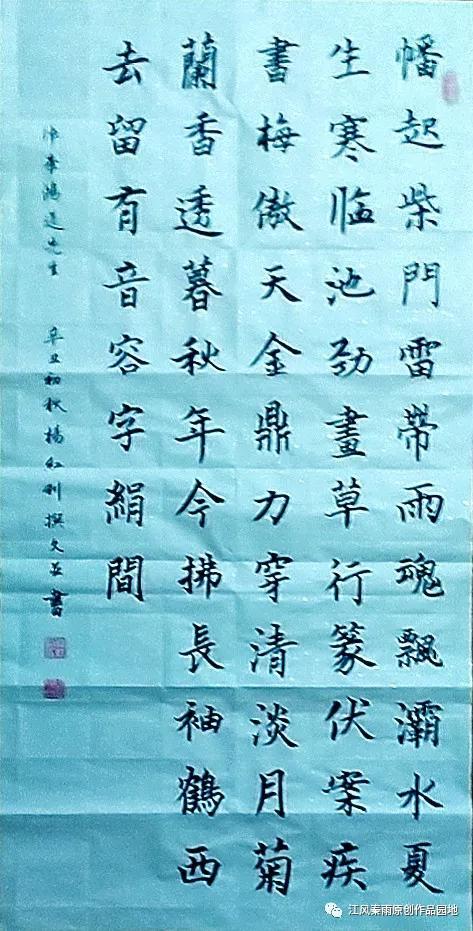 幡起柴門雷帶雨魂飄灞水夏
生寒臨池勁畫草行篆伏案疾
書梅傲天金鼎力穿清淡月菊
蘭香透暮秋年今拂長袖鶴西
去留有音容字絹間
悼李鴻運先生 辛丑初秋楊紅利撰文並書
江风秦雨原创作品园地